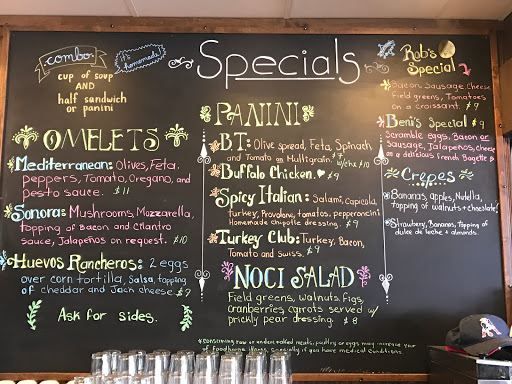 combo.
it's homemade!
cup of soup
AND
half sandwich
or panini
OMELETS
Mediterranean: Olives, Feta,
peppers, Tomato, Oregano, and
pesto sauce. $11
Sonora: Mushrooms, Mozzarella,
topping of Bacon and Cilantro
sauce, Jalapeños on request. $10
Huevos Rancheros: 2 eggs
over corn tortilla, Salsa, topping
of cheddar and Jack cheese $7
Ask for sides.
Specials
PANINI
BT: Olive spread, Feta, Spinach
and Tomato on Multigrain. $7
w/chx $10
Buffalo Chicken. $9
Spicy Italian: Salami, Capicola,
turkey, Provolone, tomatos, pepperoncini
Homemade chipotle dressing. $9
Turkey Club: Turkey, Bacon,
Tomato and Swiss. $9
NOCI SALAD
Field greens, walnuts, figs,
cranberries, carrots served w/
prickly pear dressing. $8
*consuming raw or undercooked meats, poultry or eggs may increase risk
of foodborne illness, especially if you have medical conditions.
Rob's
Special
Bacon, Sausage, Cheese
Field greens, Tomatoes
on a croissant. $9
Beni's Special $9
Scramble eggs, Bacon or
Sausage, Jalapeños, cheese
on a delicious French Bagette
Crepes
Bananas, apples, Nutella,
topping of walnuts + chocolate!
Strawberry, Bananas, topping of
dulce de leche + almonds.